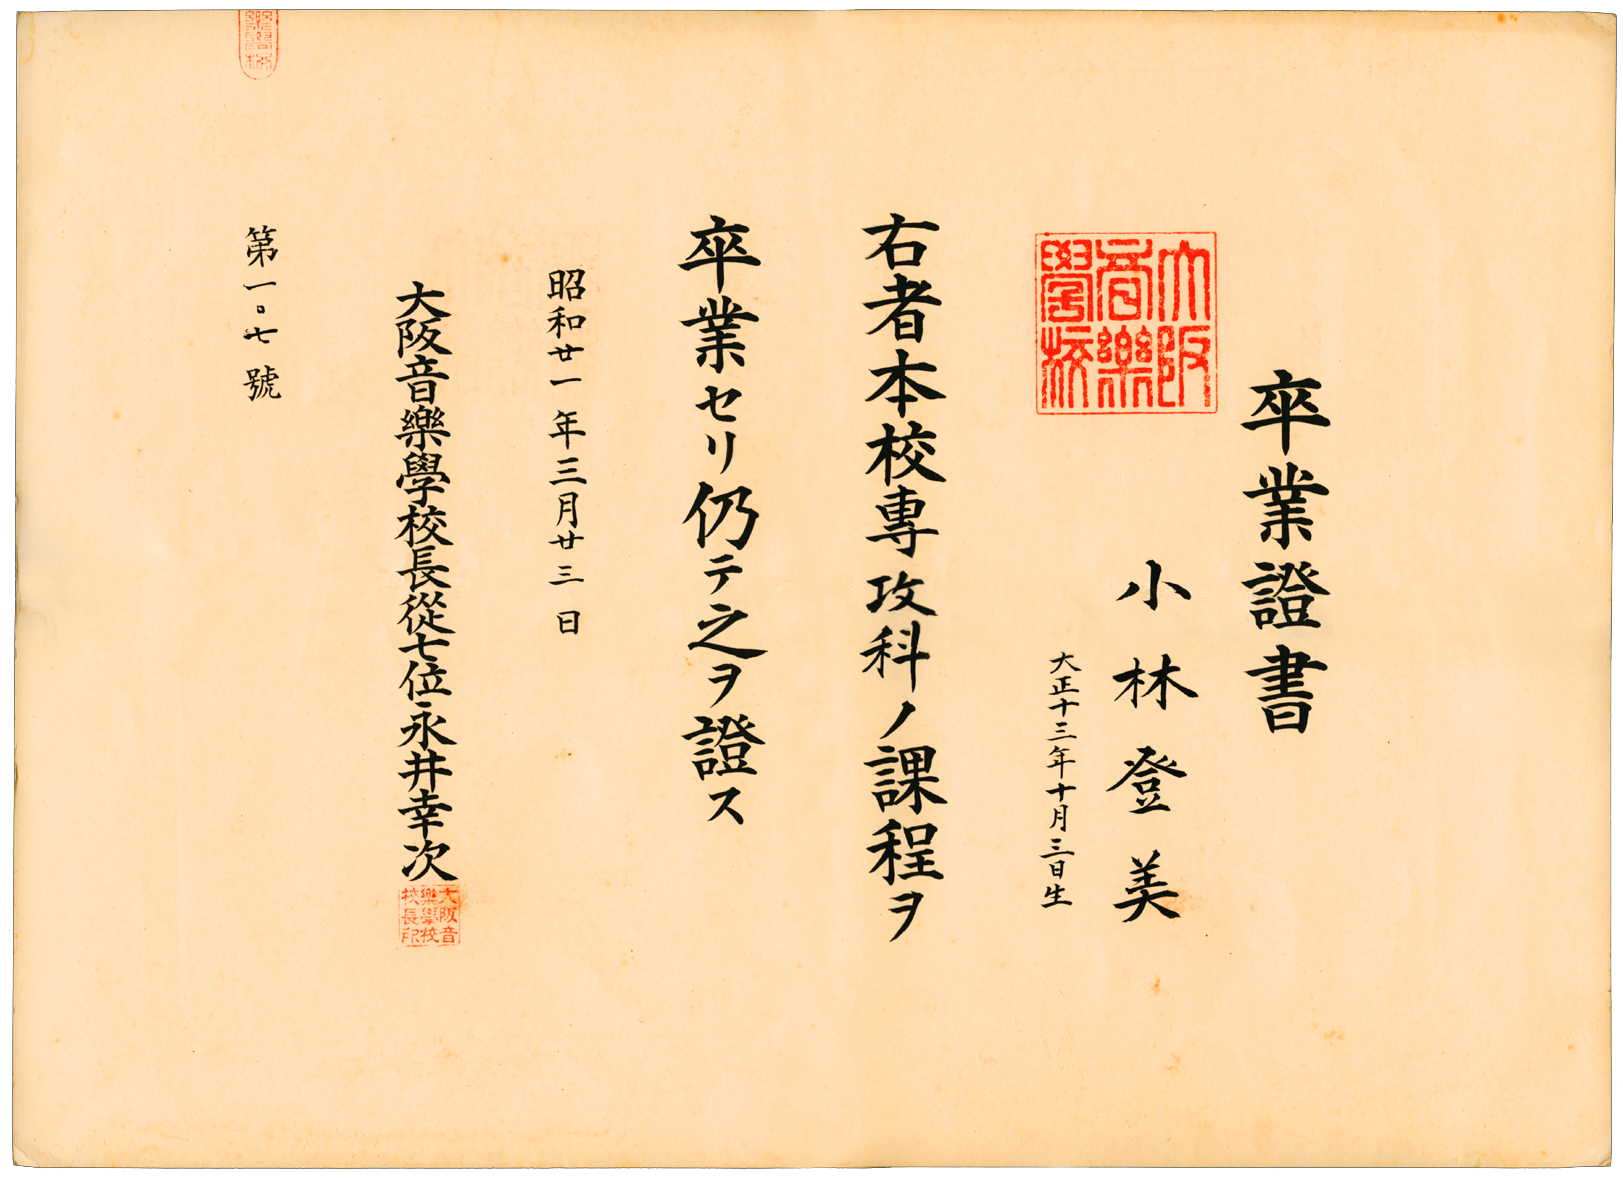 卒業證書
小林登美
大正十三年十月三日生
大阪
音樂
學校
右者本校専攻科ノ課程ヲ
卒業セリ仍テ之ヲ證ス
昭和廿一年三月廿三日
大阪音樂學校長從七位永井幸次
大阪音
樂學校
校長印
第一〇七號